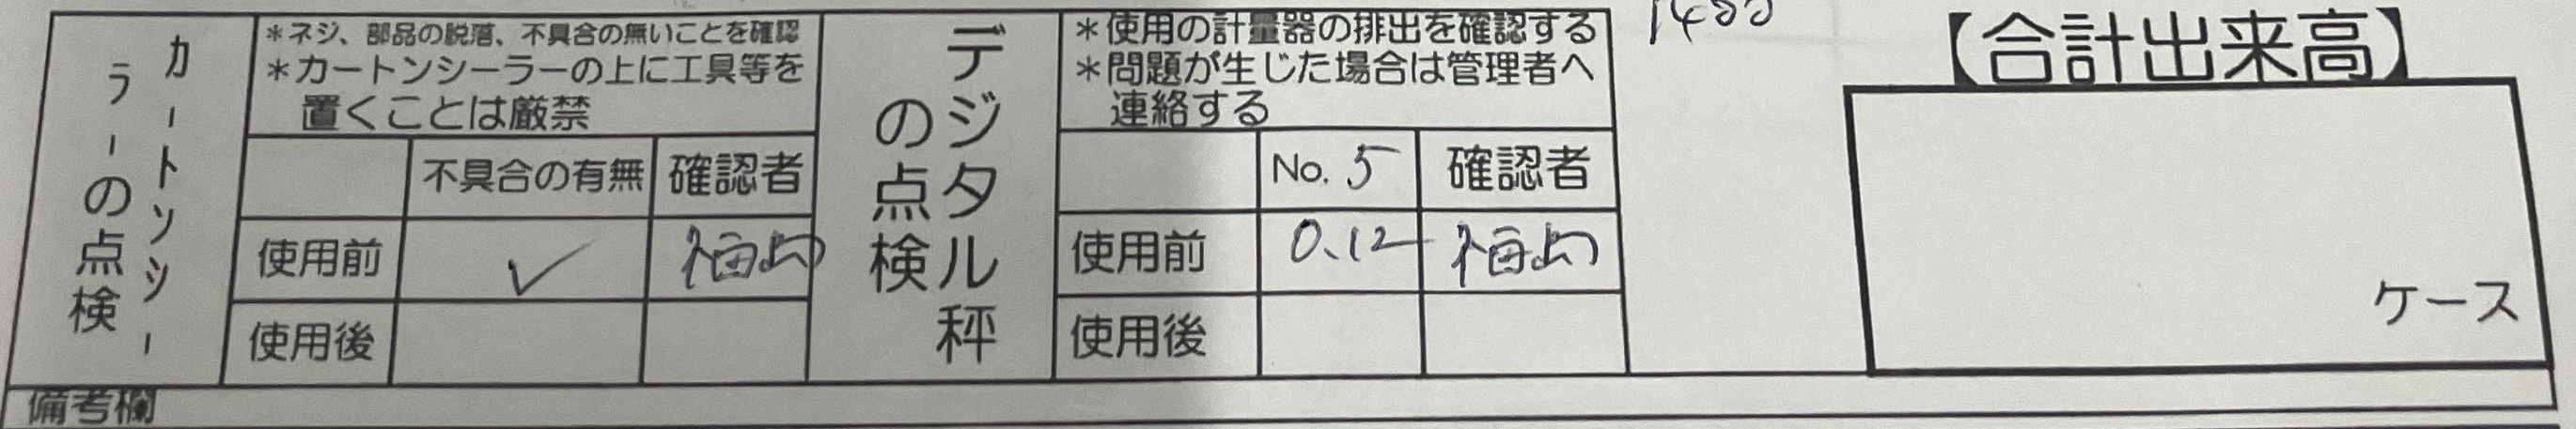 カートンシーラーの点検
＊ネジ、部品の脱落、不具合の無いことを確認
＊カートンシーラーの上に工具等を
置くことは厳禁
不具合の有無 確認者
使用前 ✓ 福島
使用後
デジタル秤の点検
＊使用の計量器の排出を確認する
＊問題が生じた場合は管理者へ
連絡する
No. 5 確認者
使用前 0.12 福島
使用後
【合計出来高】
ケース
備考欄